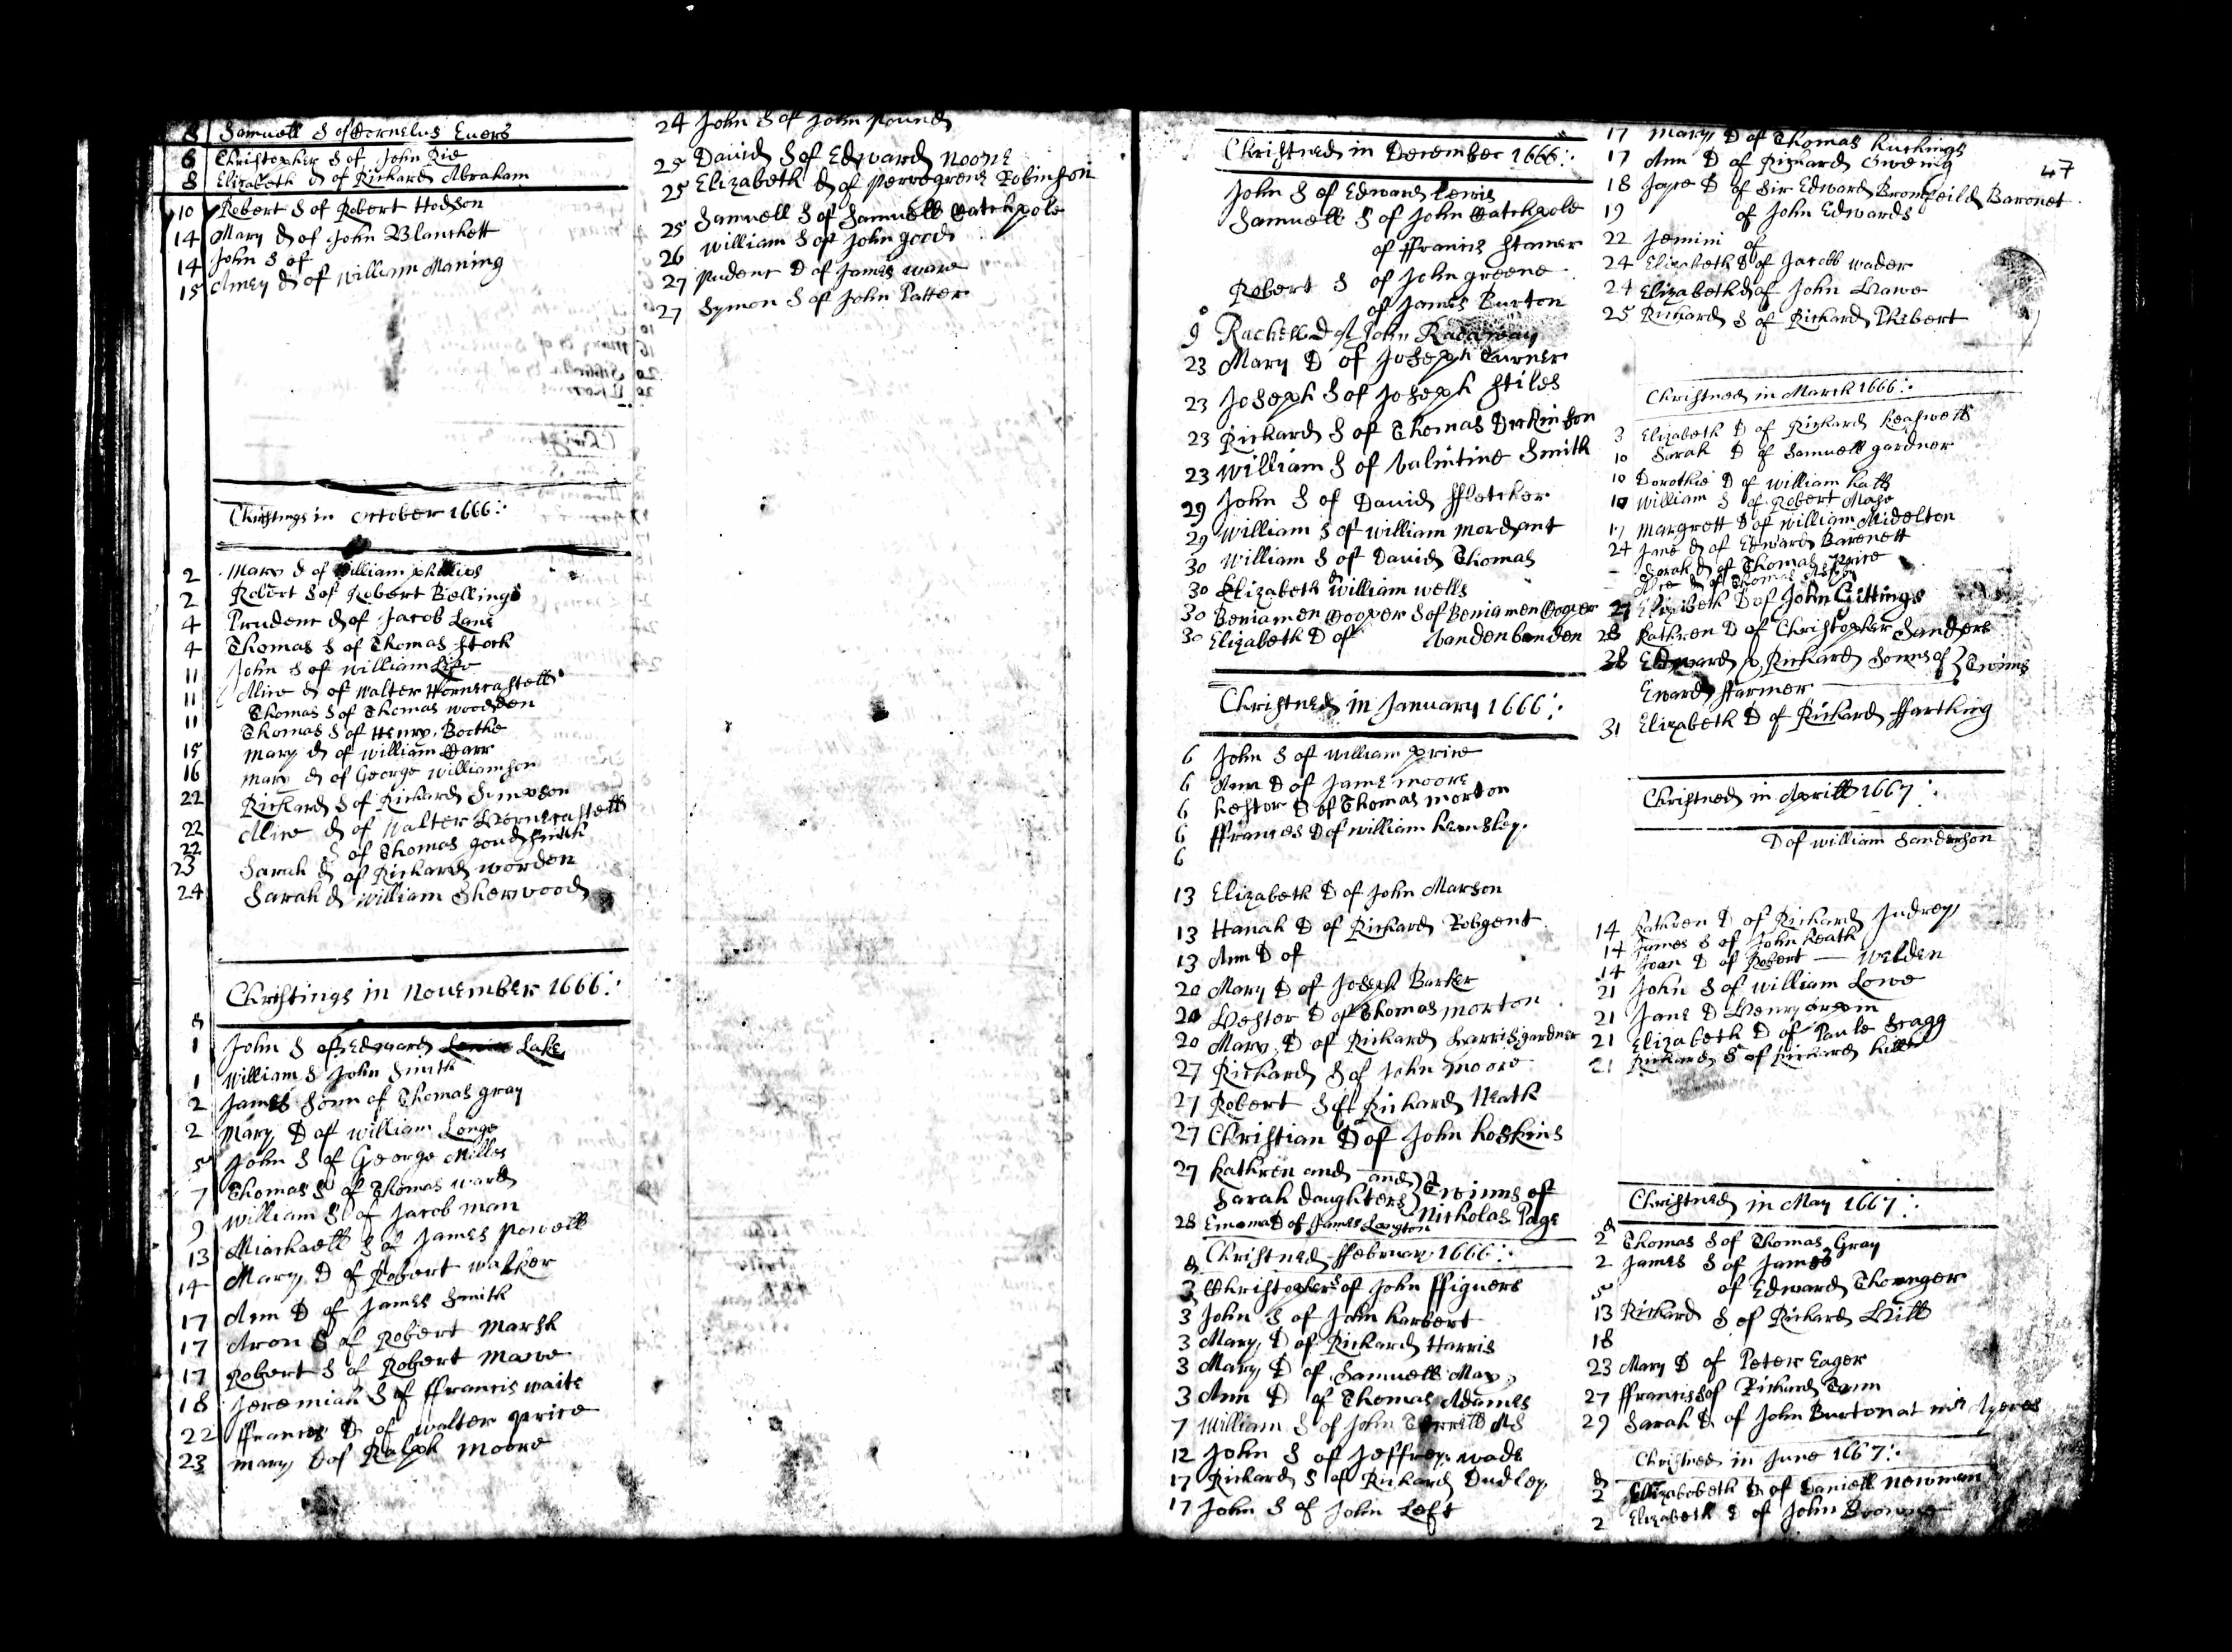 8 Samuell S of Cornelus Evers
8 Christopher S of John Rie
8 Elizabeth D of Richard Abraham
10 Robert S of Robert Hodson
14 Mary D of John Blanchett
14 John S of
15 Amey D of William Maning
Christings in october 1666:
2 Mary D of William phillips
2 Robert S of Robert Bellings
4 Prudenc D of Jacob Lane
4 Thomas S of Thomas Stock
11 John S of william
11 Alice D of Walter Hornecastell
11 Thomas S of Thomas woodden
11 Thomas S of Henry Boothe
15 mary D of william Carr
16 mary D of George williamson
22 Richard S of Richard Simpson
22 Alice D of Walter Hornecastell
22 S of Thomas goudsmith
23 Sarah D of Richard worden
24 Sarah D william Sherwood
Christings in November 1666:
1 John S of Edward Lake
1 William S John Smith
2 James Sonn of Thomas gray
2 Mary D of william Longe
5 John S of George Milles
7 Thomas S of Thomas ward
9 William S of Jacob man
13 Miachaell S of James Powell
14 Mary D of Robert walker
17 Ann D of James Smith
17 Aron S of Robert Marsh
17 Robert S of Robert
18 Jeremiah S of ffrancis waite
22 ffrances D of walter price
23 mary D of Ralph Moore
24 John S of John Pound
25 David S of Edward Noone
25 Elizabeth D of Perregrene Robinson
25 Samuell S of Samuell Catchpole
26 William S of John good
27 Prudenc D of James ware
27 Symon S of John Patter
Christned in December 1666:
John S of Edward Lewis
Samuell S of John Catchpole
of ffrancis Stamer
Robert S of John greene
of James Burton
9 Rachell D of John
23 Mary D of Joseph Turner
23 Joseph S of Joseph Stiles
23 Richard S of Thomas Dickinson
23 William S of Valintine Smith
29 John S of David ffletcher
29 William S of william Mordant
30 William S of David Thomas
30 Elizabeth D william wells
30 Beniamen Cooper S of Beniamen Cooper
30 Elizabeth D of Vandenbenden
Christned in January 1666:
6 John S of William price
6 Ann D of James moore
6 hester D of Thomas morton
6 ffrances D of william hemsley
6
13 Elizabeth D of John Marson
13 Hanah D of Richard Robgent
13 Ann D of
20 Mary D of Joseph Barker
20 Hester D of Thomas morton
20 Mary D of Richard harris gardner
27 Richard S of John moore
27 Robert S of Richard Heath
27 Christian D of John hoskins
27 kathren and and Twinns of
Sarah daughters Nicholas Page
28 Emma D of James Langton
Christned ffebruary 1666:
3 Christopher S of John ffigners
3 John S of John harbert
3 Mary D of Richard Harris
3 Mary D of Samuell May
3 Ann D of Thomas Adames
7 William S of John
12 John S of Jeffrey wade
17 Richard S of Richard Dudley
17 John S of John Loft
47
17 mary D of Thomas huchings
17 Ann D of Richard Owening
18 Joyce D of Sir Edward Bromfeild Baronet
19 of John Edwards
22 Jemini of
24 Elizabeth D of Jacobb wader
24 Elizabeth D of John
25 Richard S of Richard Phibert
Christned in March 1666:
3 Elizabeth D of Richard
10 Sarah D of Samuell gardner
10 Dorothie D of william
10 William S of Robert
17 Margrett D of william Midelton
24 Jane D of Edward Baronett
Sarah D of Thomas Price
D of Thomas
27 Elizabeth D of John Gittings
28 kathren D of Christopher Sanders
28 Edward & Richard Sonns of Twinns
Eward ffarmer
31 Elizabeth D of Richard ffarthing
Christned in Aprill 1667:
D of william Sanderson
14 kathren D of Richard Judrey
14 James S of John heath
14 Joan D of Robert — Welden
21 John S of william Lowe
21 Jane D Henry
21 Elizabeth D of Paule Scagg
21 Richard S of Richard
Christned in May 1667:
2 Thomas S of Thomas Gray
2 James S of James
5 of Edward
13 Richard S of Richard Hill
18
23 Mary D of Peter Eager
27 ffrancis S of Richard
29 Sarah D of John Burton at mr Ayeres
Christned in June 1667:
2 Elizabeth D of Daniell Newman
2 Elizabeth D of John Browne